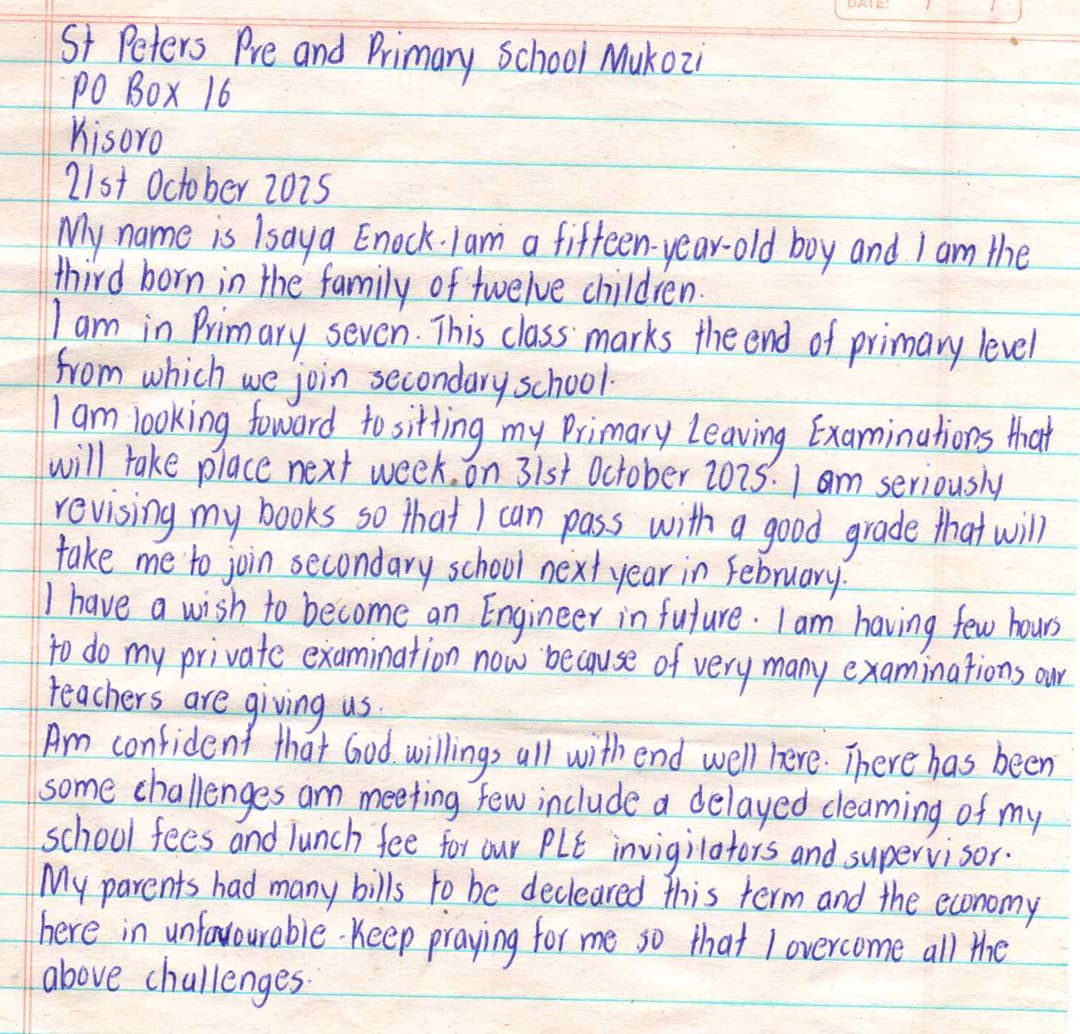 DATE:
St Peters Pre and Primary School Mukozi
PO Box 16
Kisoro
21st October 2025
My name is Isaya Enock. I am a fifteen-year-old boy and I am the
third born in the family of twelve children.
I am in Primary seven. This class marks the end of primary level
from which we join secondary school.
I am looking foward to sitting my Primary Leaving Examinations that
will take place next week. on 31st October 2025. I am seriously
revising my books so that I can pass with a good grade that will
take me to join secondary school next year in February.
I have a wish to become an Engineer in future. I am having few hours
to do my private examination now because of very many examinations our
teachers are giving us.
Am confident that God. willings all with end well here. There has been
some challenges am meeting few include a delayed cleaming of my
school fees and lunch fee for our PLE invigilators and supervisor.
My parents had many bills to be decleared this term and the economy
here in unfavourable. Keep praying for me so that I overcome all the
above challenges.